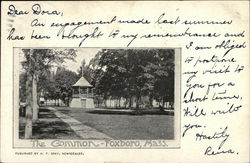 Dear Dora,
An engagement made last summer
has been brought to my remembrance and
I am obliged
to postpone
my visit to
you for a
short time.
Will write
you.
Hastily
The Common - Foxboro, Mass.
PUBLISHED BY